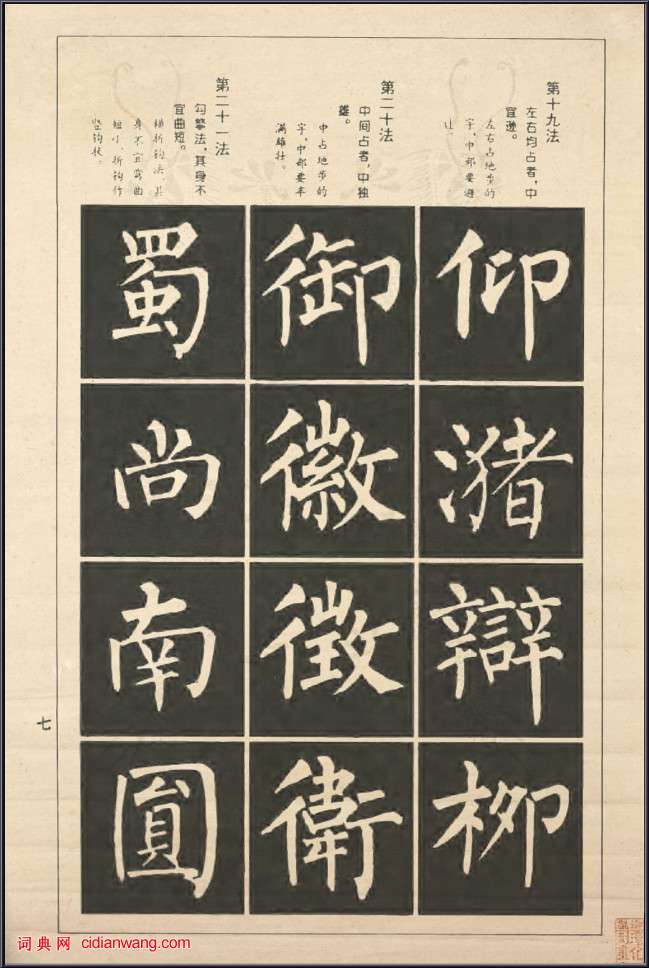 第十九法
左右均占者，中
宜逊。
左右占地步的
字，中部要避
让
仰
潴
辩
柳
第二十法
中间占者，中独
雄。
中占地步的
字，中部要丰
满雄壮。
御
徽
徵
衛
第二十一法
勾拏法，其身不
宜曲短。
横折钩法其
身不宜弯曲
短小，折钩作
竖钩状。
蜀
尚
南
圓
七
词典网 cidianwang.com